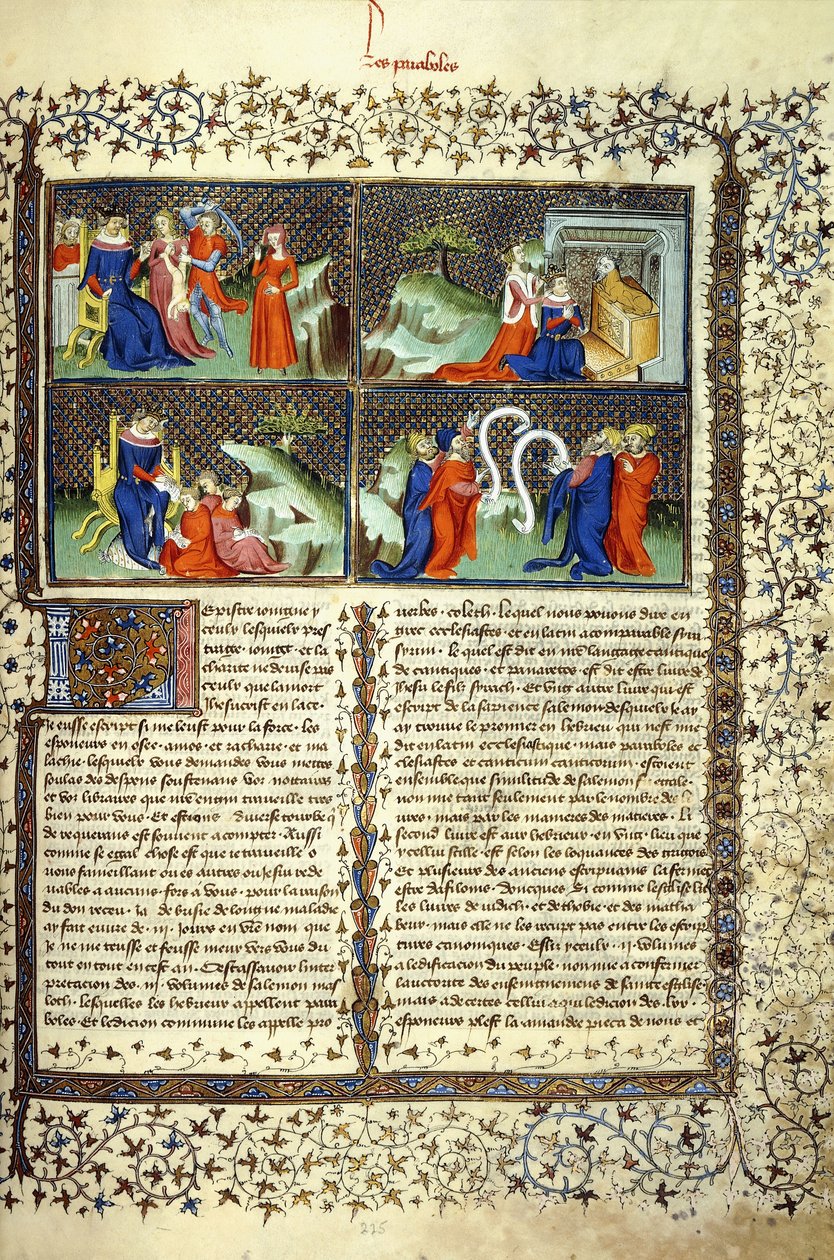 Les paraboles
Epistre ioingne y
ceulx lesquielx pres
trage ioingt et la
charite ne deuise pas
ceulx que lamort
Ihesucrist enlace
Je eusse escript si me leust pour la force les
esponeurs en osee amos et zacharie et ma
lachie lesquielx vous demandes vous mettes
soulas des despens soustenans voz nottaires
et voz libraires que nre engin traueille tres
bien pour vous Et estions diuerse tourbe
de requerans est souuent a compter Aussi
comme se egal chose est que ie traueille o
vous fameillant ou es autres ou ie suy rede
uables a aucuns fors a vous pour la raison
du don receu Ja de brisie de longue maladie
ay fait euure de iij iours en vre nom que
Je ne me teusse et feusse meur vers vous du
tout en tout en cest an Cest assauoir linter
pretacion des iij volumes de salemon mas
loth lesquelles les hebrieux appellent para
boles Et ledicion commune les appelle pro
uerbes coleth lequel nous pouons dire en
grec ecclesiastes et en latin
syrim le quel est dit en nre langage cantique
de cantiques et panaretos est dit estre liure de
Ihesu le filz syrach Et vng autre liure qui est
escript de la sapience salemon desquelx ie ay
ay trouue le premier en hebrieu qui nest mie
dit en latin ecclesiastique mais paraboles ec
clesiastes et canticum canticorum estoient
ensemble que similitude de salemon egale
non mie tant seulement par le nombre des li
ures mais par les manieres des matieres Li
second liure est aux hebrieux en vng lieu que
ycellui stille est selon les loquances des gregois
Et plusieurs des anciens escripuains la ferment
estre du filons doncques Si comme leglise lit
les liures de iudich et de thobie et des matha
beux mais elle ne les recoipt pas entre les escrip
tures canoniques Et si yceulx ij volumes
a ledificacion du peuple non mie a confermer
lauctorite des enseignemens de sainte eglise
mais a decertes cellui a qui ledicion des lxx
esponeurs plest la amandee pieca de nous et
225